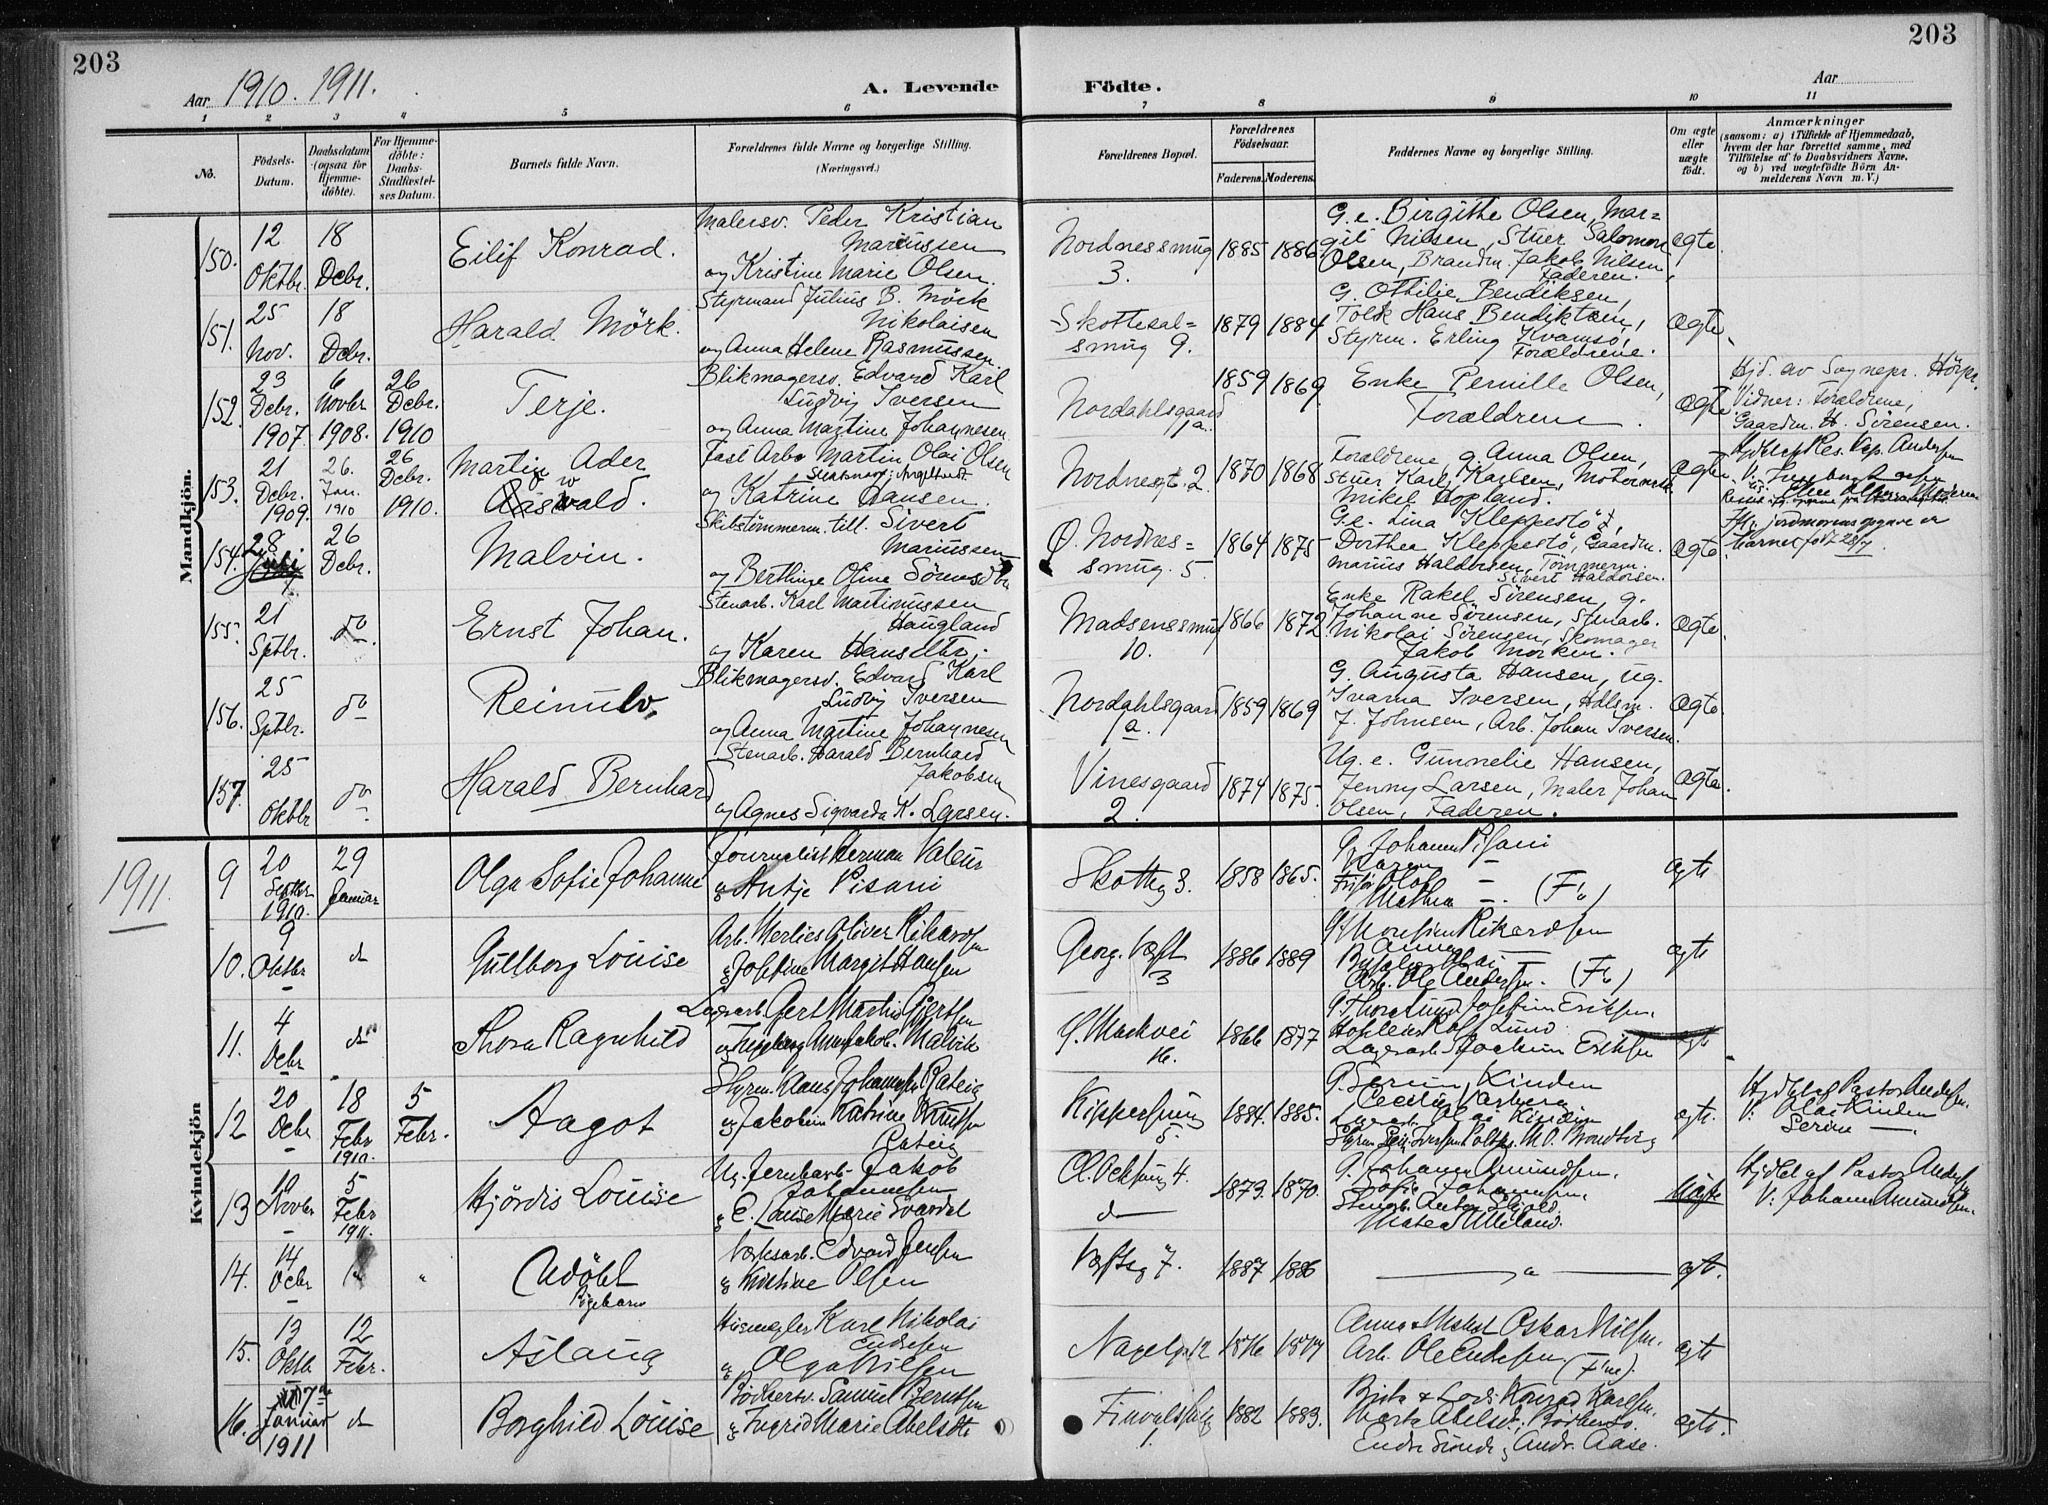 203
203
Aar 1910. 1911.
A. Levende Födte.
Aar
1 2 3 4 5 6 7 8 9 10 11
No.
Födsels-Datum.
Daabsdatum (ogsaa for Hjemme-döbte).
For Hjemme-döbte: Daabs-Stadfæstel-ses Datum.
Barnets fulde Navn.
Forældrenes fulde Navne og borgerlige Stilling. (Næringsvei.)
Forældrenes Bopæl.
Forældrenes Födselsaar.
Faderens. Moderens.
Faddernes Navne og borgerlige Stilling.
Om ægte eller uægte födt.
Anmærkninger
(saasom: a) i Tilfælde af Hjemmedaab, hvem der har forrettet samme, med Tilföielse af to Daabsvidners Navne, og b) ved uægtefödte Börn An-melderens Navn m. V.)
Mandkjön.
150. 12 Oktbr. 18 Debr. Eilif Konrad.
Malersv. Peder Kristian
Mariussen
og Kristine Marie Olsen.
Nordnessmug 3. 1885 1886
G. e. Birgithe Olsen, Mar=
git Nilsen, Stuer Salomon
Olsen, Brandm. Jakob Nilsen,
Faderen.
ægte.
151. 25 Nov. 18 Debr. Harald Mörk.
Styrmand Julius B. Mörk
Nikolaisen
og Anna Helene Rasmussen
Skottesal=
smug 9. 1879 1884
G. Othilie Bendiksen,
Tolk Hans Bendiktsen,
Styrm. Erling Kvamsö,
Forældrene.
ægte.
152. 23 Debr. 1907. 6 Novbr 1908. 26 Debr. 1910 Terje.
Blikmagersv. Edvard Karl
Ludvig Iversen
og Anna Martine Johannesen
Nordahlsgaard 1a. 1859 1869
Enke Pernille Olsen,
Forældrene.
ægte.
Hjd. av Sognepr.
Vidner: Forældrene,
Gaardm. H. Sörensen.
153. 21 Debr. 1909. 26. Jan. 1910 26 Debr. 1910. Martin Ader
Aasvald.
Fast Arb. Martin Olai Olsen
og Katrine Hansen
Nordnesgt. 2. 1870 1868
Forældrene g. Anna Olsen,
Stuer Karl Karlsen,
Mikel Hopland.
ægte.
Res. Kap. Andersen
154. 28 Juli 26 Debr. Malvin.
Skibstömmerm. till. Sivert
Mariussen
og Berthine Oline Sörensdtr
Ö. Nordnes=
smug. 5. 1864 1875
G. e. Lina Kleppestö,
Dorthea Kleppestö, Gaardm.
Marius Haldorsen, Tömmerm.
Sivert Haldorsen.
ægte.
Iflg. jordmorens opgave er
barnet født 28/7.
155. 21 Sptbr. do Ernst Johan.
Stenarb. Karl Martinussen
Haugland
og Karen Hansdtr.
Madsenssmug
10. 1866 1872
Enke Rakel Sörensen, g.
Johanne Sörensen, Stenarb.
Nikolai Sörensen, Skomager
Jakob Morken.
ægte.
156. 25 Sptbr. do Reinulv.
Blikmagersv. Edvard Karl
Ludvig Iversen
og Anna Martine Johannesen
Nordahlsgaard
1a. 1859 1869
G. Augusta Hansen, ug.
Ivarna Iversen, Hdlsm.
J. Johnsen, Arb. Johan Iversen.
ægte.
157. 25 Oktbr do Harald Bernhard
Stenarb. Harald Bernhard
Jakobsen
og Agnes Sigvarda K. Larsen.
Vinesgaard
2. 1874 1875.
Ug. e. Gunnelie Hansen,
Jenny Larsen, Maler Johan
Olsen, Faderen.
ægte.
1911.
Kvindekjön
9 20 Septbr 1910. 29 Januar Olga Sofie Johanne
Journalist Herman Valeur
& Antje Pisani
Skotteg 3. 1858 1865.
G. Johanne Pisani
Karen —
Olof —
Mathea —. (F.)
ægte
10. 9 Oktbr do Gullborg Louise
Arb. Oliver Rikardsen
& Josefine Margit Hansen
Georg. Væft
3 1886 1889
Rikardsen
Anna —
Arb. Ole Andersen. (F.)
ægte
11. 4 Debr do Thora Ragnhild
Lagerarb. Gert Martin Gjertsen
& Ingeborg Malvik
16. 1866 1877
G. Thora Lund Josefine Eriksen.
Rolf Lund
Lagerarb. Eriksen
ægte
12 20 Debr 18 Febr 1910. 5 Febr. Aagot
Styrm. Hans Johannes Rateig
& Jakobine Katrine Knutsen
Rateig
Kippersmug
5. 1884. 1885.
G. Serine Kinden
Cecilie
Olai Kinden
ægte.
Hjdbt af Pastor Andersen.
V: Olai Kinden
Serine —.
13 10 Novbr 5 Febr 1911. Hjördis Louise
Ug. Jernbarb. Jakob
Johannesen
& E. Louise Marie Svardal
4 1879. 1870.
G. Johanne Amundsen.
Sofie Johannesen.
Uægte
Hjdbt af Pastor Andersen
V: Johanne Amundsen.
14. 14 Debr " Udöbt
Pigebarn
Edvard Jensen
& Kristine Olsen
Væftsg 7. 1887 1886
— " —
ægt.
15. 13 Oktb. 12 Febr. Aslaug
Karl Nikolai
Endesen
& Olga Nilsen
Nagelg. 12
Anna & Oskar Nilsen.
Arb. Ole Endesen. (F'ne).
ægte
16. 17de Januar 1911 do Borghild Louise
Bödkersv. Samuel Berntsen
& Ingrid Marie Abelsdtr
1. 1882 1883.
Konrad Karlsen.
Marta Abelsd.
Andr. Aase.
ægte.